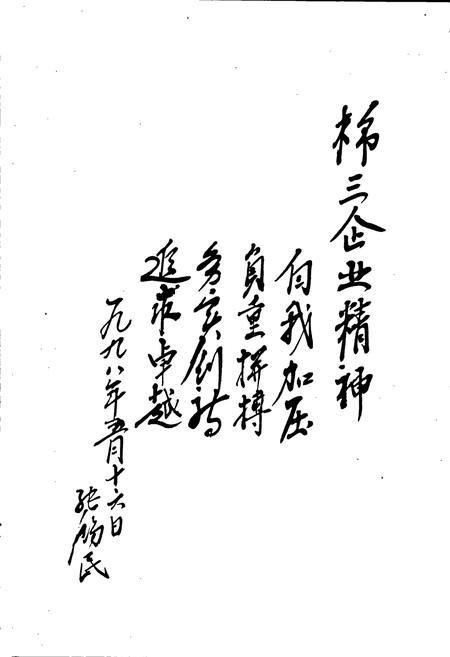 棉三企业精神
自我加压
负重拼搏
务实创新
追求卓越
一九九八年五月十六日
张
民